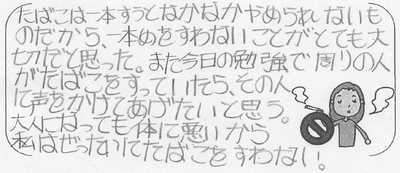 たばこは一本すうとなかなかやめられないも
のだから、一本めをすわないことがとても大
切だと思った。また今日の勉強で周りの人
がたばこをすっていたら、その人
に声をかけてあげたいと思う。
大人になっても体に悪いから
私はぜったいにてたばこをすわない!